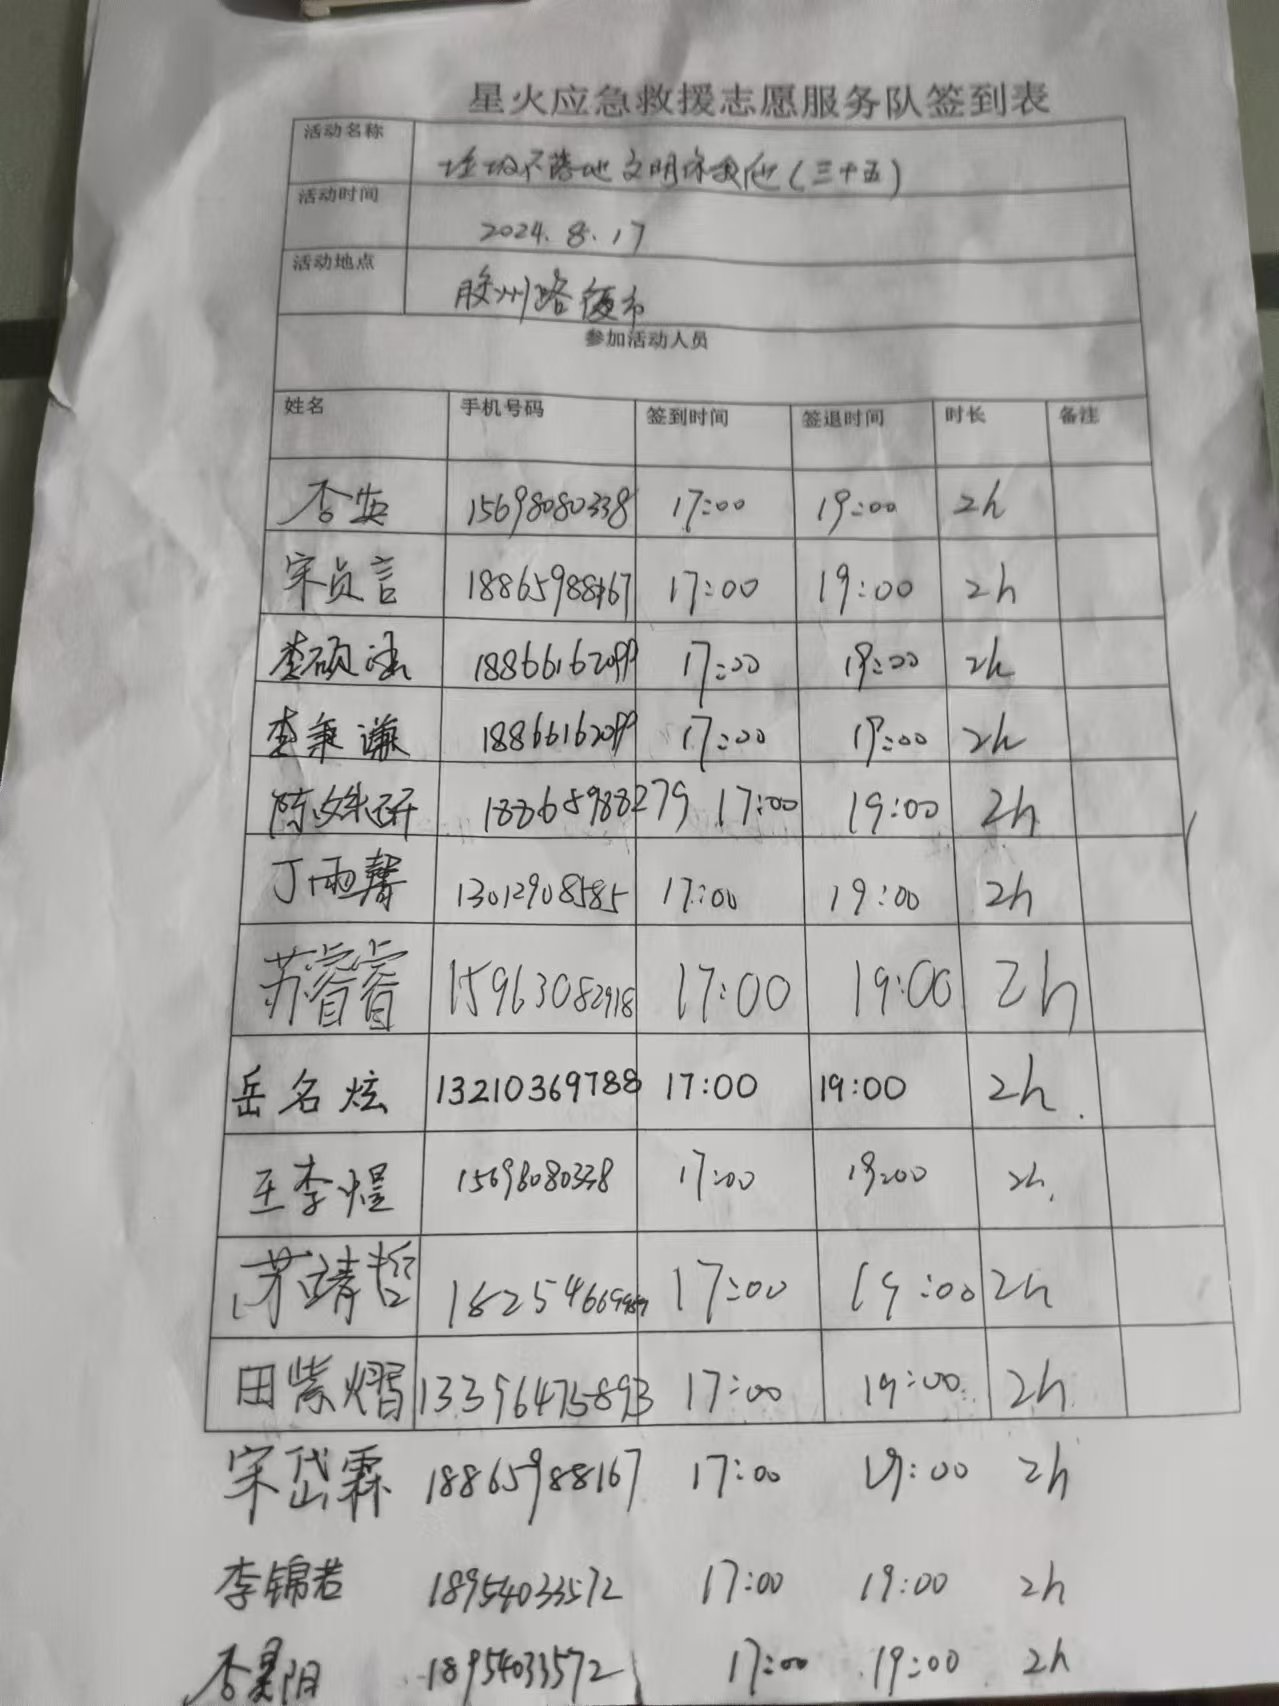 星火应急救援志愿服务队签到表
活动名称 垃圾不落地 文明你我他(三十五)
活动时间 2024.8.17
活动地点 胶州路夜市
参加活动人员
姓名 手机号码 签到时间 签退时间 时长 备注
李安 15698080338 17:00 19:00 2h
宋贞言 18865988167 17:00 19:00 2h
李硕涵 18866162099 17:00 19:00 2h
李秉谦 18866162099 17:00 19:00 2h
陈姝研 18865988279 17:00 19:00 2h
丁雨馨 13012908585 17:00 19:00 2h
苏睿睿 15963082918 17:00 19:00 2h
岳名炫 13210369788 17:00 19:00 2h.
王李煜 15698080338 17:00 19:00 2h.
茅靖哲 17:00 19:00 2h
田紫熠 13396475893 17:00 19:00 2h
宋岱霖 18865988167 17:00 19:00 2h
李锦若 18954033572 17:00 19:00 2h
李昊阳 18954033572 17:00 19:00 2h